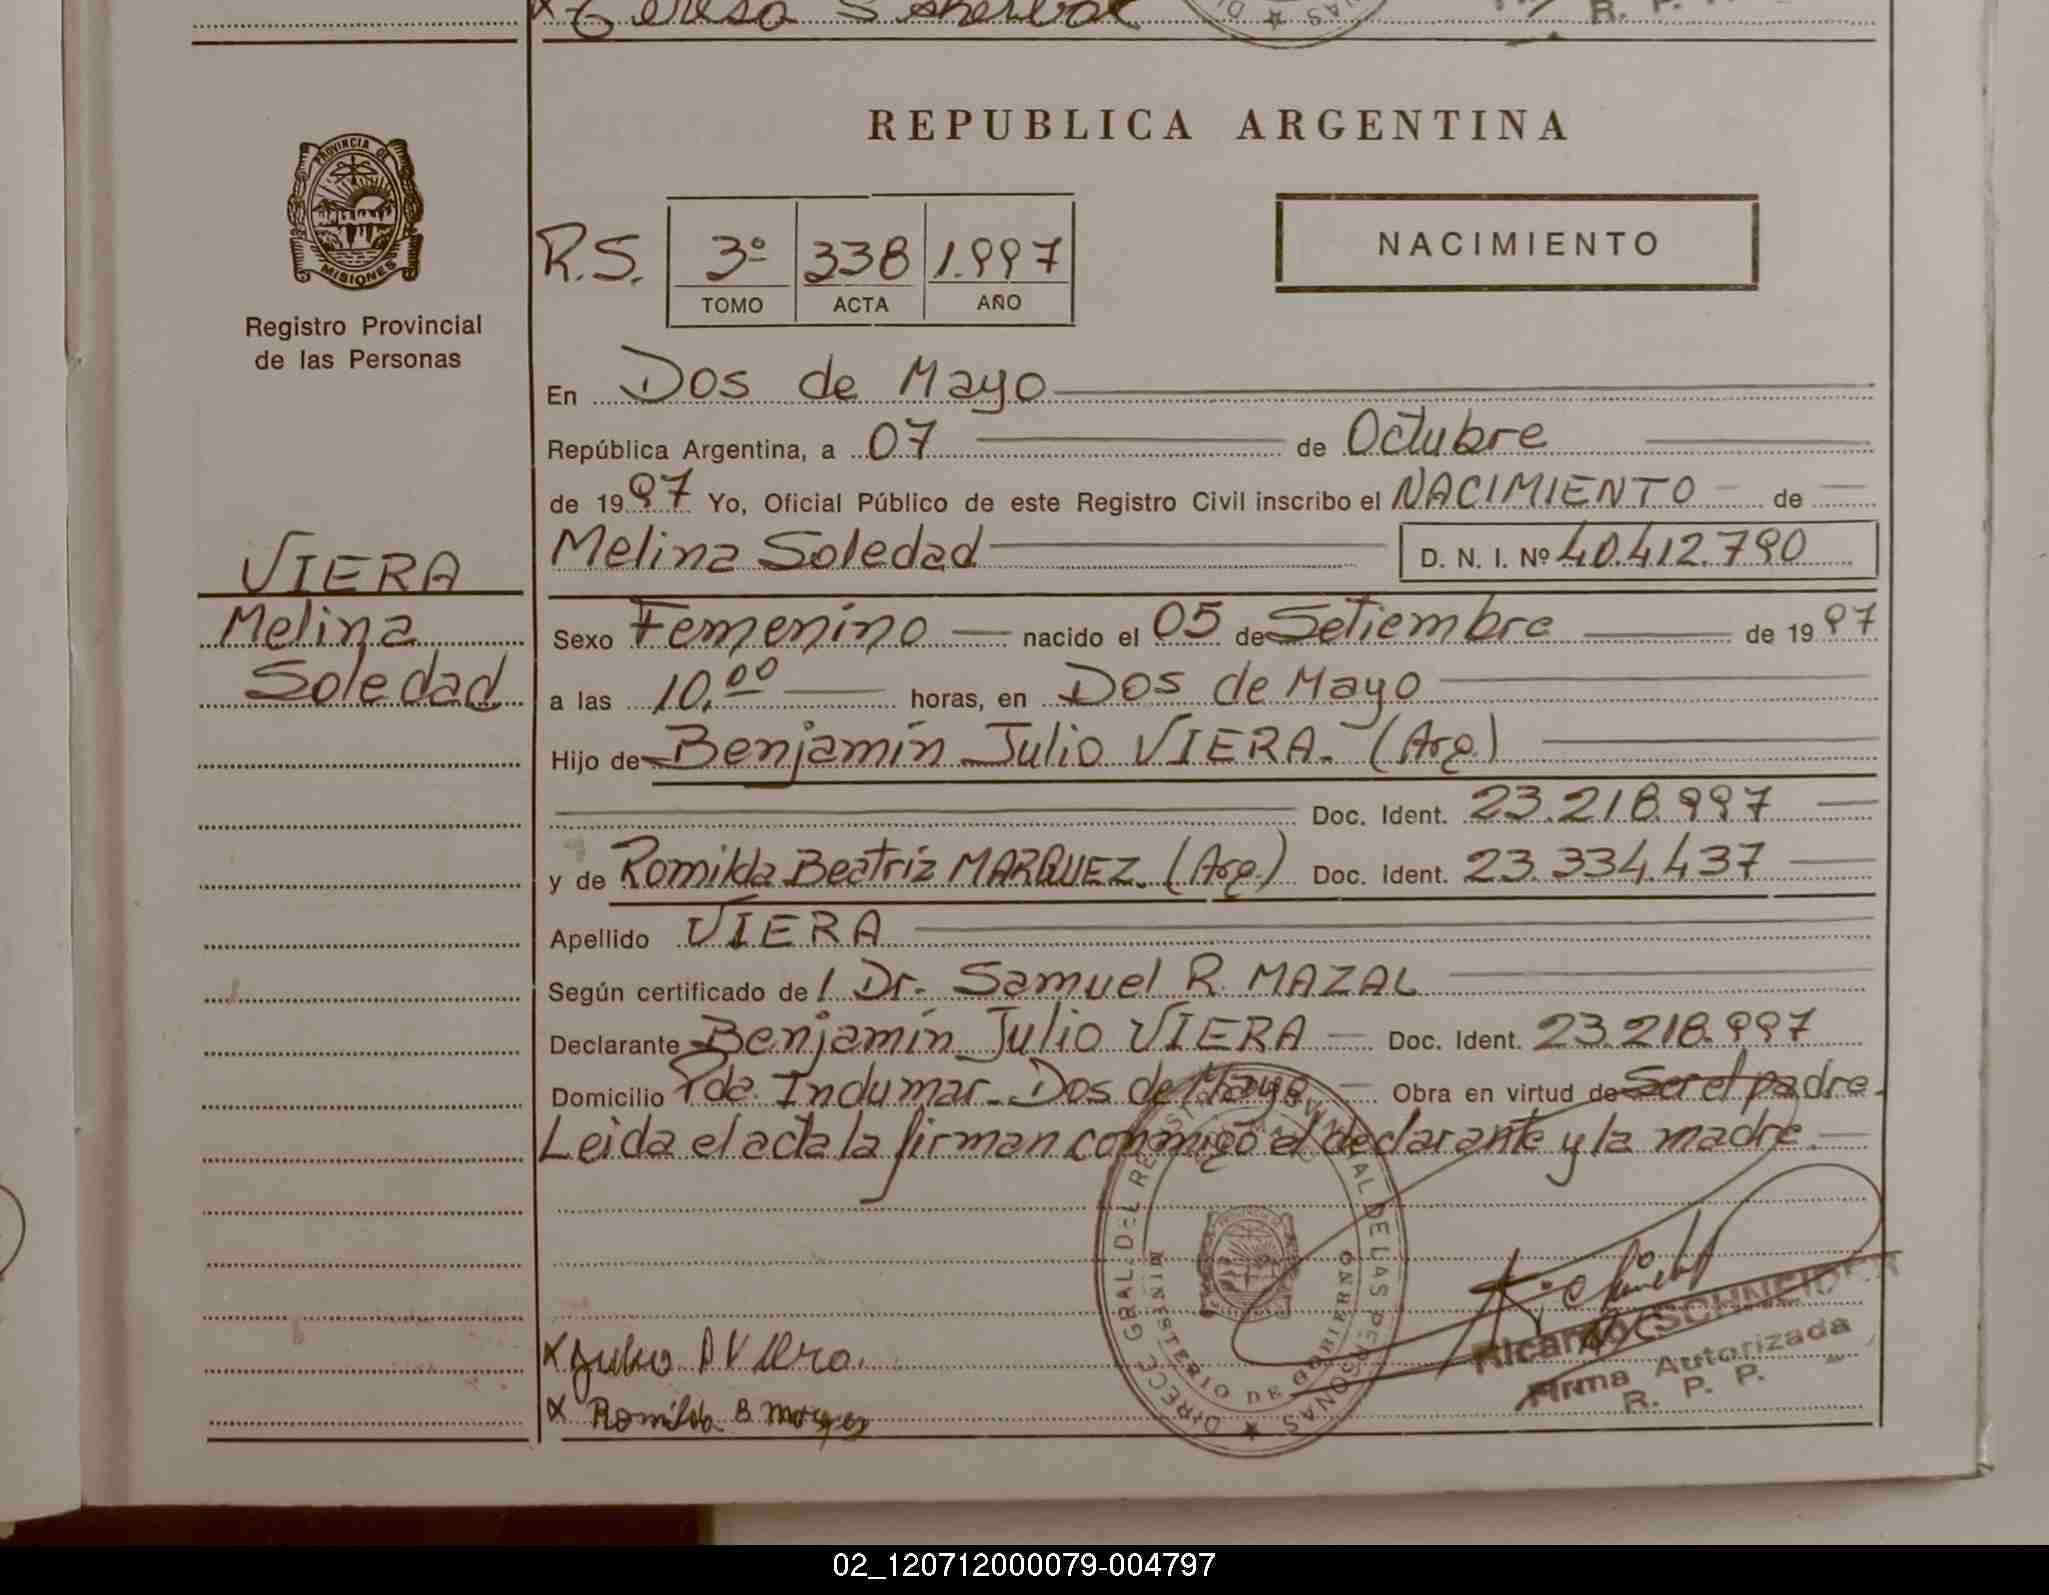 Teresa
PROVINCIA DE
MISIONES
Registro Provincial
de las Personas
REPUBLICA ARGENTINA
R.S. 3º 338 1.997
TOMO ACTA AÑO
NACIMIENTO
En Dos de Mayo
República Argentina, a 07 de Octubre
de 1997 Yo, Oficial Público de este Registro Civil inscribo el NACIMIENTO de
Melina Soledad D. N. I. Nº 40.412.790
VIERA
Melina
Soledad
Sexo Femenino nacido el 05 de Setiembre de 1997
a las 10.00 horas, en Dos de Mayo
Hijo de Benjamín Julio VIERA. (Arg.)
Doc. Ident. 23.218.997
y de Romilda Beatríz MARQUEZ. (Arg.) Doc. Ident. 23.334.437
Apellido VIERA
Según certificado de l Dr. Samuel R. MAZAL
Declarante Benjamín Julio VIERA Doc. Ident. 23.218.997
Domicilio Pda. Indumar. Dos de Mayo Obra en virtud de Ser el padre.
Leída el acta la firman conmigo el declarante y la madre.
DIRECC. GRAL. DEL REGISTRO PROVINCIAL DE LAS PERSONAS
MINISTERIO DE GOBIERNO
Ricardo SCHNEIDER
Firma Autorizada
R. P. P.
x Romilda B
02_120712000079-004797